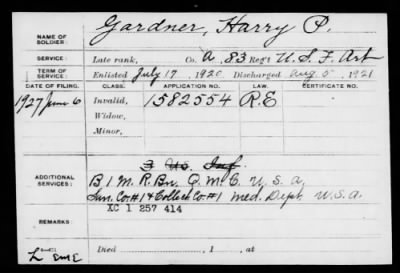 Gardner, Harry P.
NAME OF SOLDIER:
SERVICE: Late rank, Co. A, 83 Reg't U. S. F. Art
TERM OF SERVICE: Enlisted July 17, 1920, Discharged Aug 5, 1921
DATE OF FILING. CLASS. APPLICATION NO. LAW. CERTIFICATE NO.
1927 June 6 Invalid, 1582554 R.E
Widow,
Minor,
3 U.S. Inf
ADDITIONAL SERVICES: B 1 M. R. Bn. Q. M. C. U. S. A.
Co. #1 & Collect Co. #1 Med. Dept. U. S. A.
XC 1 257 414
REMARKS:
Died , 1 , at